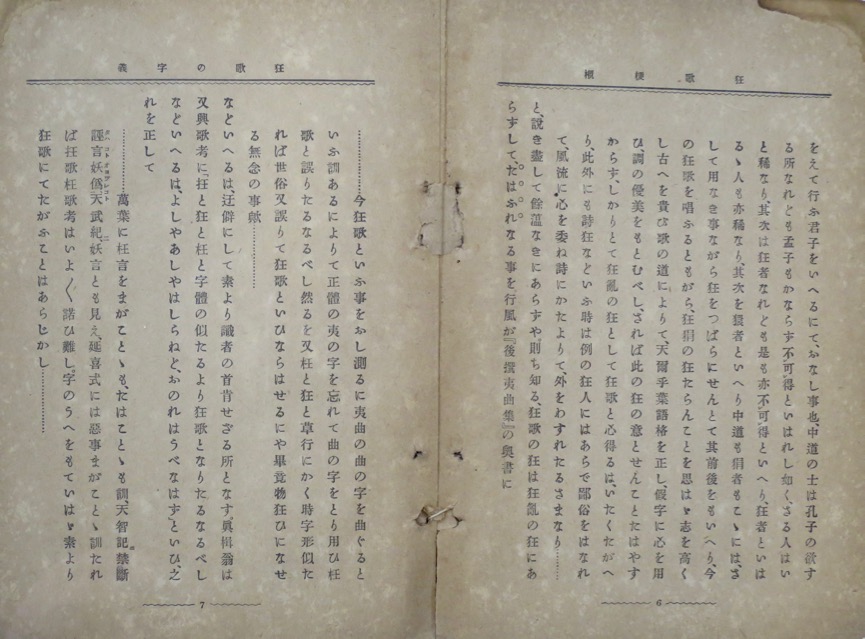 狂歌梗概
をえて行ふ君子をいへるにて、おなし事也、中道の士は孔子の欲す
る所なれども孟子もかならす不可得といはれし如く、さる人はい
と稀なり、其次は狂者なれども是も亦不可得といへり、狂者といは
るゝ人も亦稀なり、其次を狷者といへり中道も狷者もこゝにはさ
して用なき事ながら狂をつばらにせんとて其前後をもいへり、今
の狂歌を唱ふるともがら、狂狷の狂たらんことを思はゞ志を高く
し古へを貴び歌の道によりて、天爾乎葉語格を正し、假字に心を用
ひ、調の優美をもとむべし、されば此の狂の意とせんことたはやす
からす、しかりとて狂亂の狂として狂歌と心得るは、いたくたがへ
り、此外にも詩狂などいふ時は例の狂人にはあらで鄙俗をはなれ
て、風流に心を委ね詩にかたよりて、外をわすれたるさまなり………
と、說き盡して餘蘊なきにあらすや。則ち知る、狂歌の狂は狂亂の狂にあ
らすして、たはふれなる事を行風が『後撰夷曲集』の奧書に
6
狂歌の字義
…………今狂歌といふ事をおし測るに夷曲の曲の字を曲ぐると
いふ訓あるによりて正體の夷の字を忘れて曲の字をとり用ひ枉
歌と誤りたるなるべし然るを又枉と狂と草行にかく時字形似た
れば世俗又誤りて狂歌といひならはせるにや畢竟物狂ひになせ
る無念の事歟…………
などいへるは、迂僻にして素より識者の首肯せざる所となす眞楫翁は
又興歌考に「抂と狂と枉と字體の似たるより狂歌となりたるなるべし
などいへるは、よしやあしやはしらねど、おのれはうべなはす」といひ、之
れを正して
…………萬葉に枉言をまがことゝも、たはことゝも訓、天智記、禁斷
誣言妖僞「天武紀、妖言とも見え、延喜式には惡事まがことゝ訓たれ
ば抂歌枉歌考はいよ〳〵諾ひ難し。字のうへをもていはゞ素より
狂歌にてたがふことはあらじかし…………
7